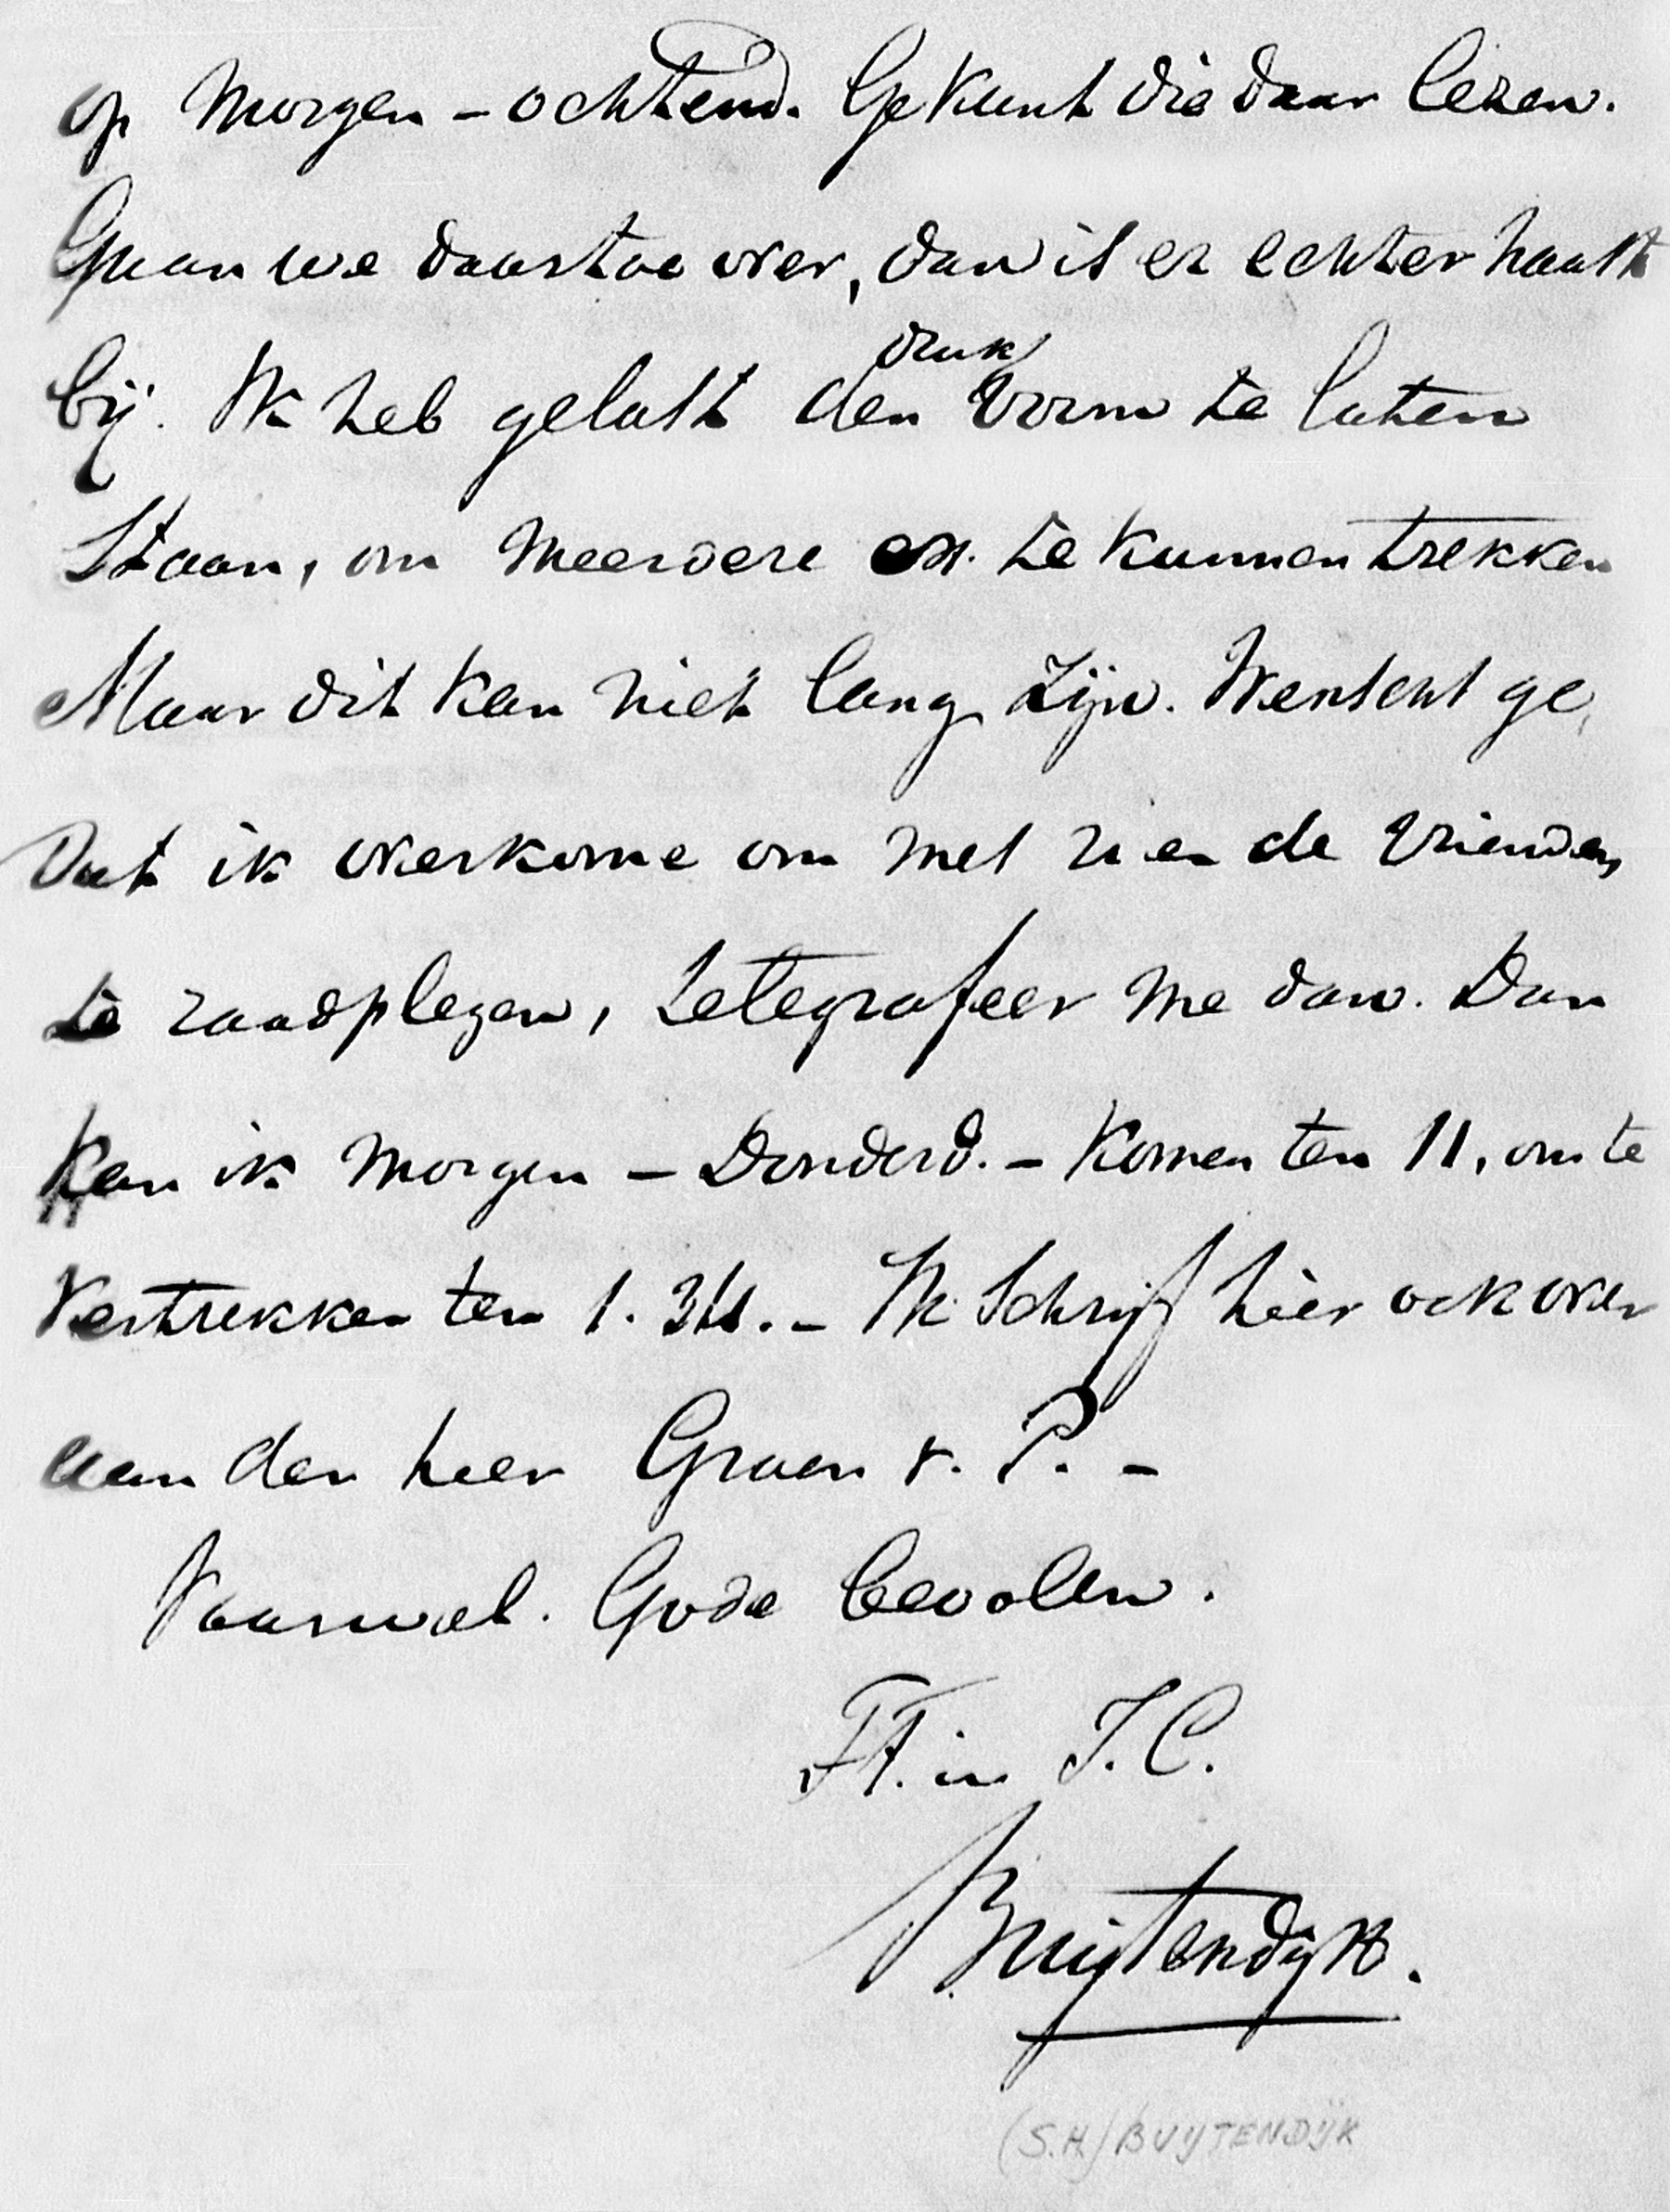 op morgen - ochtend. Ge kunt die daar lezen.
Gaan we daartoe over, dan is er echter haast
druk
bij. Ik heb gelast den vorm te laten
staan, om meerdere ex. te kunnen trekken
Maar dit kan niet lang zijn. Wenscht ge,
dat ik overkome om met u en de vrienden
te raadplegen, telegrafeer me dan. Dan
kan ik morgen - Donderd. - komen ten 11, om te
vertrekken ten 1. - Ik schrijf hier ook over
aan den heer Groen v. P. -
Vaarwel. Gode bevolen.
TT. in J. C.
Buijtendijk.
(S.H.) BUYTENDIJK